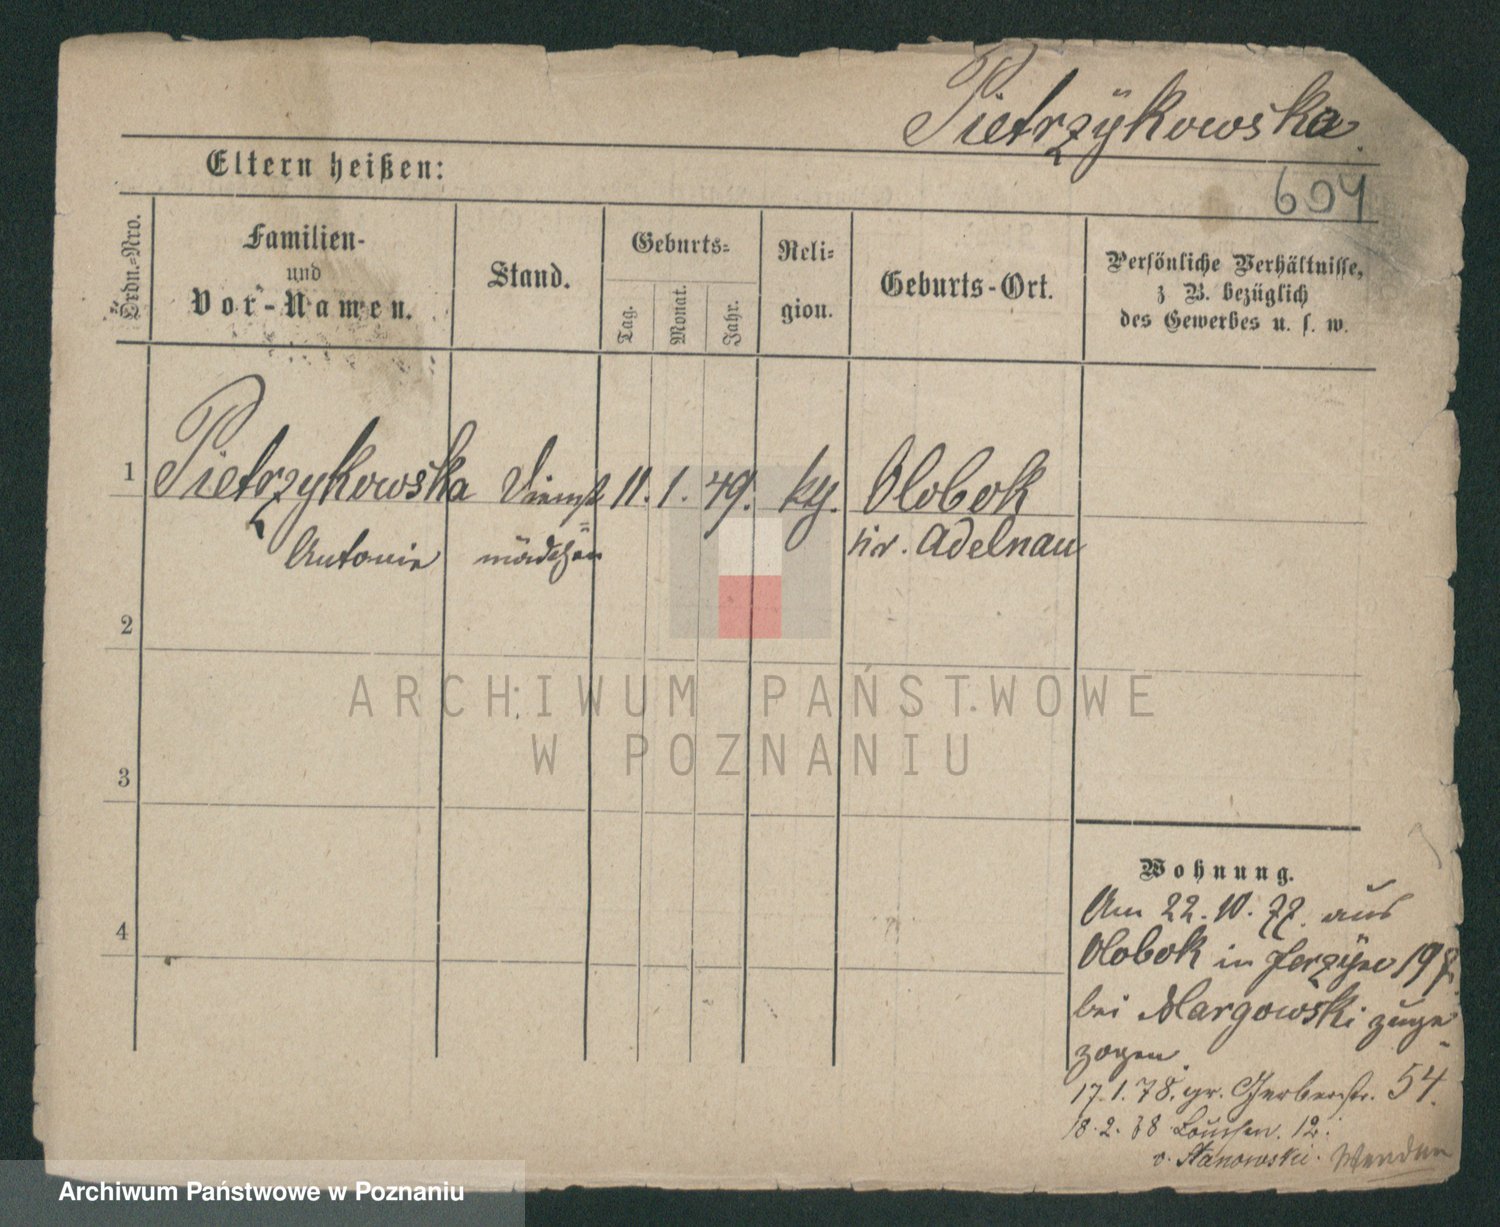 Pietrzÿkowska.
Eltern heißen:
694
Ordn.-Nro.
Familien-
und
Vor-Namen.
Stand.
Geburts-
Tag.
Monat.
Jahr.
Reli-
gion.
Geburts-Ort.
Persönliche Verhältnisse,
z B. bezüglich
des Gewerbes u. s. w.
1
Pietrzykowska Dienst 11. 1. 49. kg. Olobok
Antonie mädchen Kr. Adelnau
2
3
4
ARCHIWUM PAŃSTWOWE
W POZNANIU
Wohnung.
Am 22. 10. 77. aus
Olobok in Jerzÿce 197.
bei Margowski zuge-
zogen.
17. 1. 78. gr. Gerberstr. 54.
18. 2. 78 12.
v. Stanowski. Wenden
Archiwum Państwowe w Poznaniu